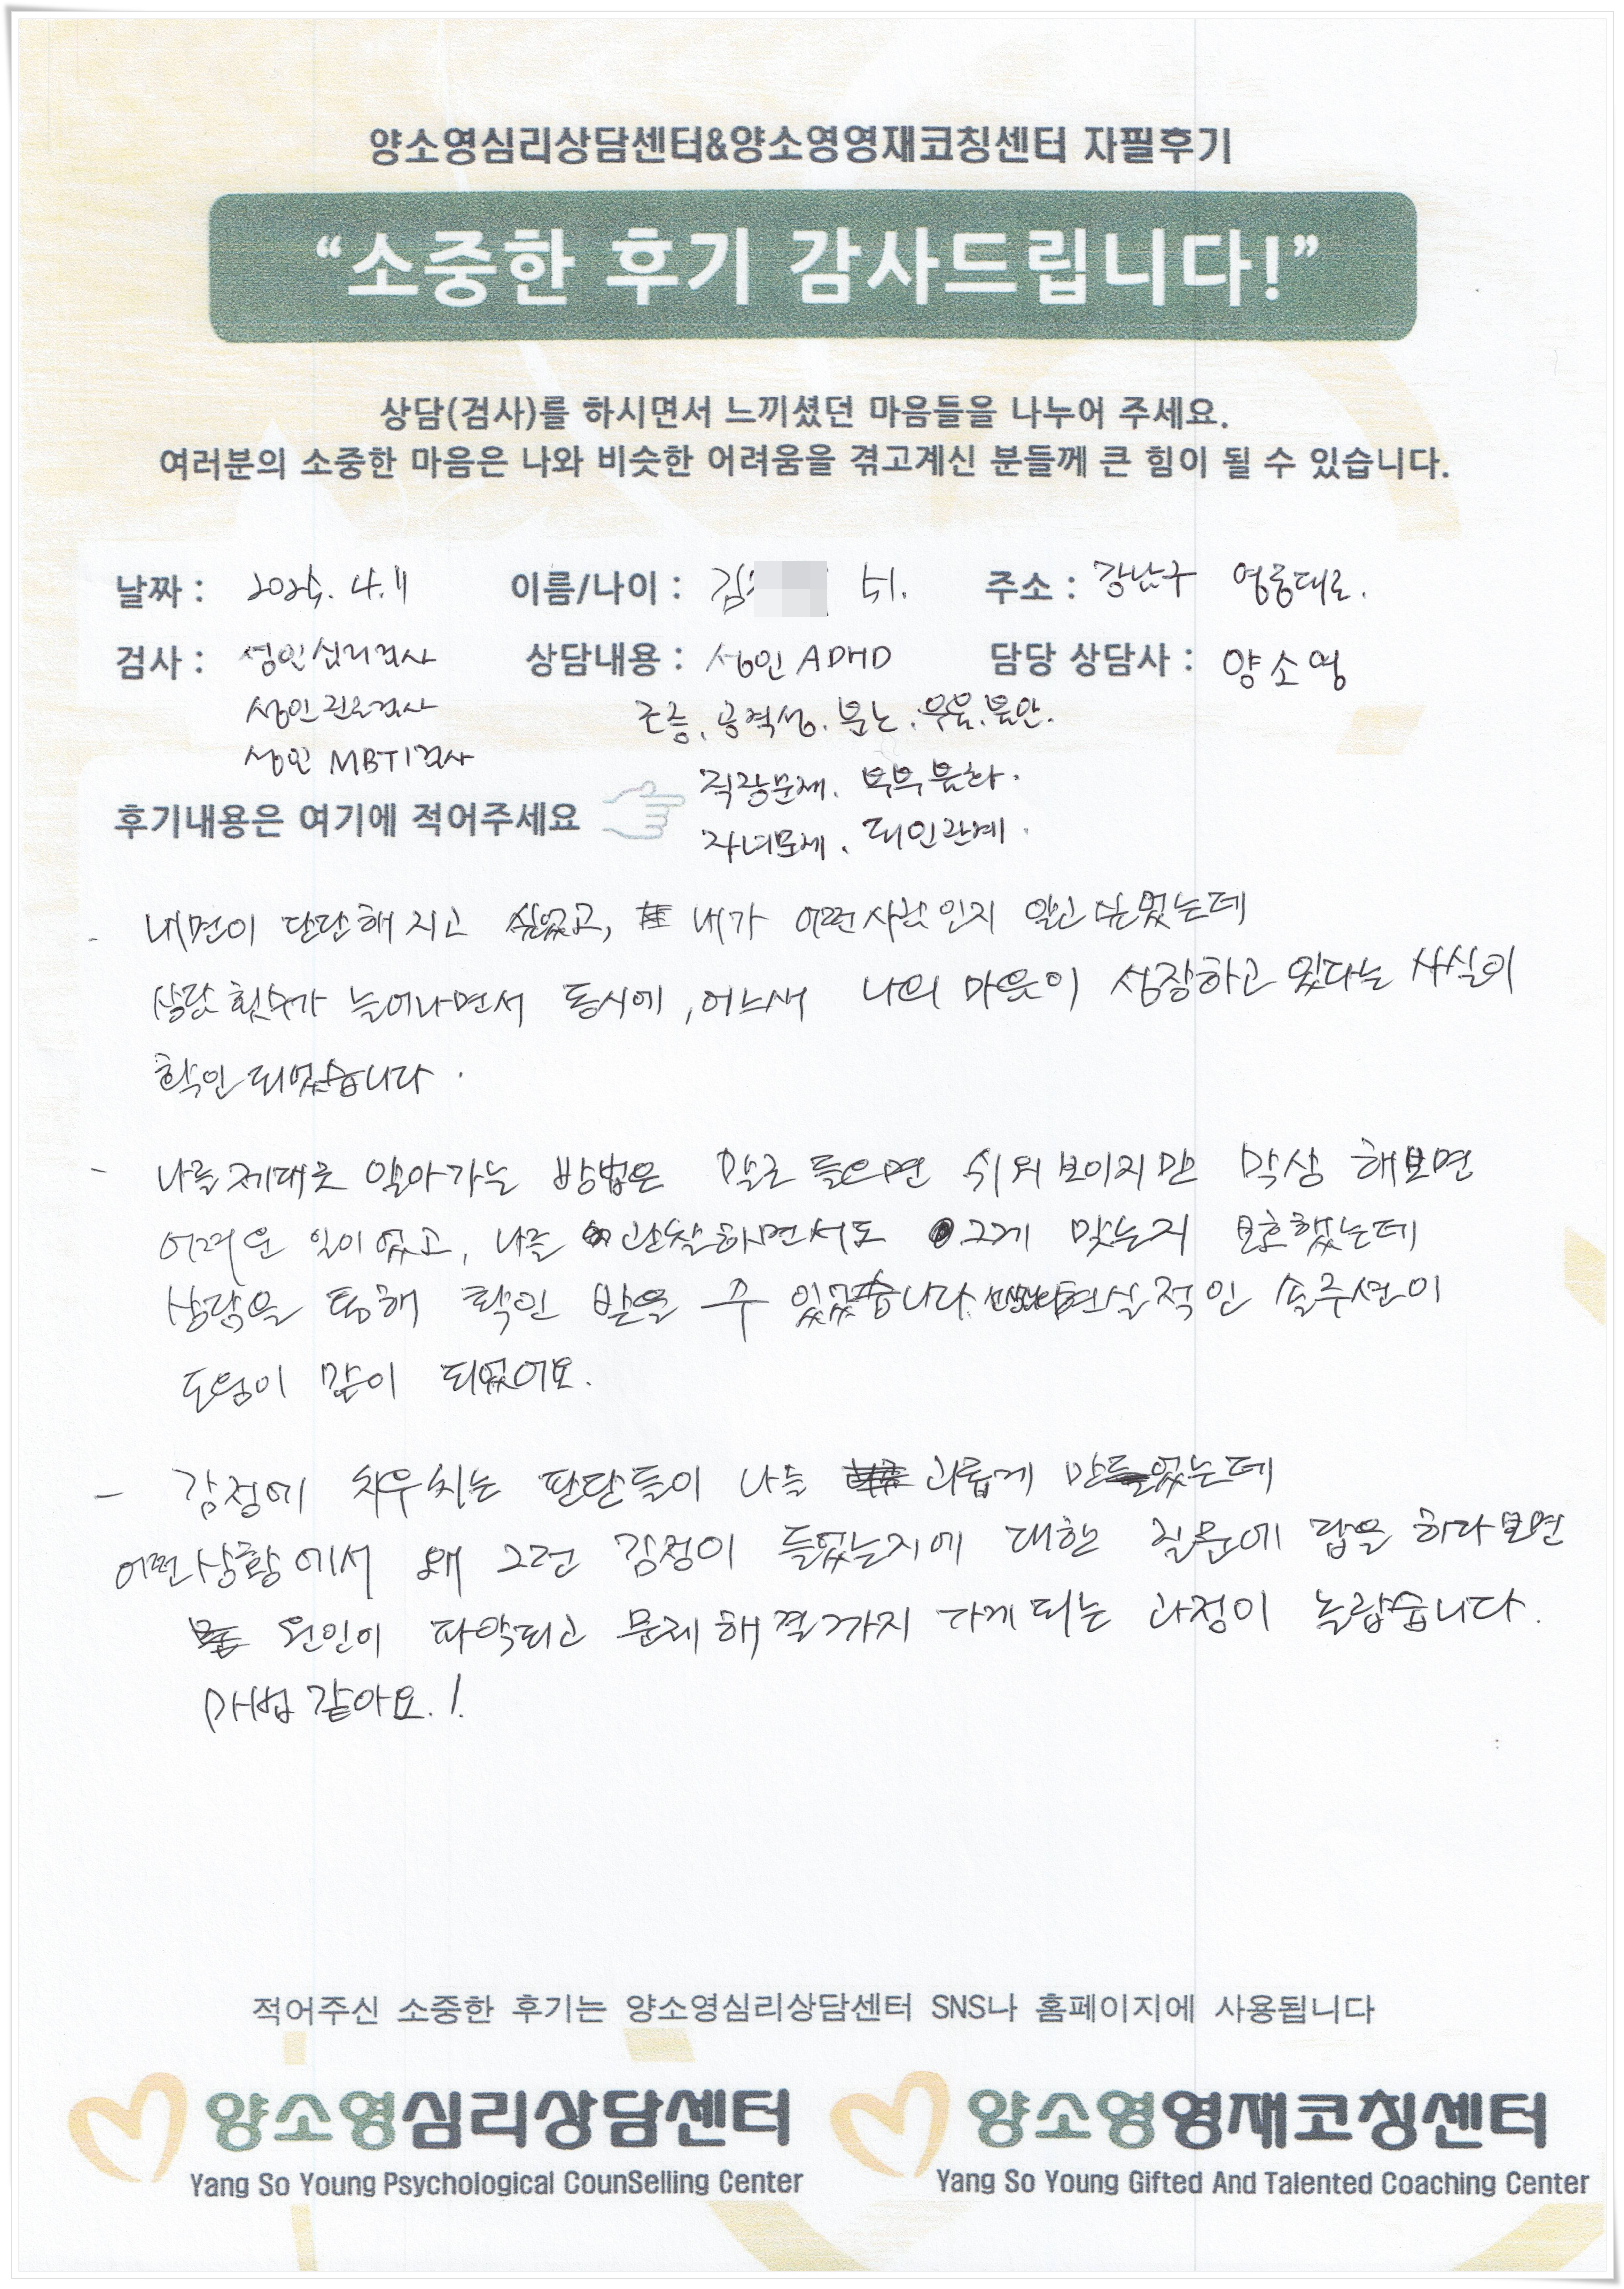 양소영심리상담센터&양소영영재코칭센터 자필후기
“소중한 후기 감사드립니다!”
상담(검사)를 하시면서 느끼셨던 마음들을 나누어 주세요.
여러분의 소중한 마음은 나와 비슷한 어려움을 겪고계신 분들께 큰 힘이 될 수 있습니다.
날짜 : 2025. 4. 11 이름/나이 : 김 51. 주소 : 강남구 영동대로.
검사 : 성인심리검사 상담내용 : 성인 ADHD 담당 상담사 : 양소영
성인진로검사 조증, 공격성. 분노. 우울. 불안.
성인 MBTI검사 직장문제. 부부불화.
후기내용은 여기에 적어주세요 자녀문제. 대인관계.
- 내면이 단단해 지고 싶었고, 내가 어떤사람인지 알고 싶었는데
상담 횟수가 늘어나면서 동시에, 어느새 나의 마음이 성장하고 있다는 사실이
확인 되었습니다.
- 나를 제대로 알아가는 방법은 말로 들으면 쉬워 보이지만 막상 해보면
어려운 일이 었고, 나를 관찰하면서도 그게 맞는지 모호했는데
상담을 통해 확인 받을 수 있었습니다. 현실적인 솔루션이
도움이 많이 되었어요.
- 감정에 치우치는 판단들이 나를 괴롭게 만들었는데
어떤 상황에서 왜 그런 감정이 들었는지에 대한 질문에 답을 하다보면
원인이 파악되고 문제해결까지 가게되는 과정이 놀랍습니다.
마법 같아요.!
적어주신 소중한 후기는 양소영심리상담센터 SNS나 홈페이지에 사용됩니다
양소영심리상담센터 양소영영재코칭센터
Yang So Young Psychological CounSelling Center Yang So Young Gifted And Talented Coaching Center